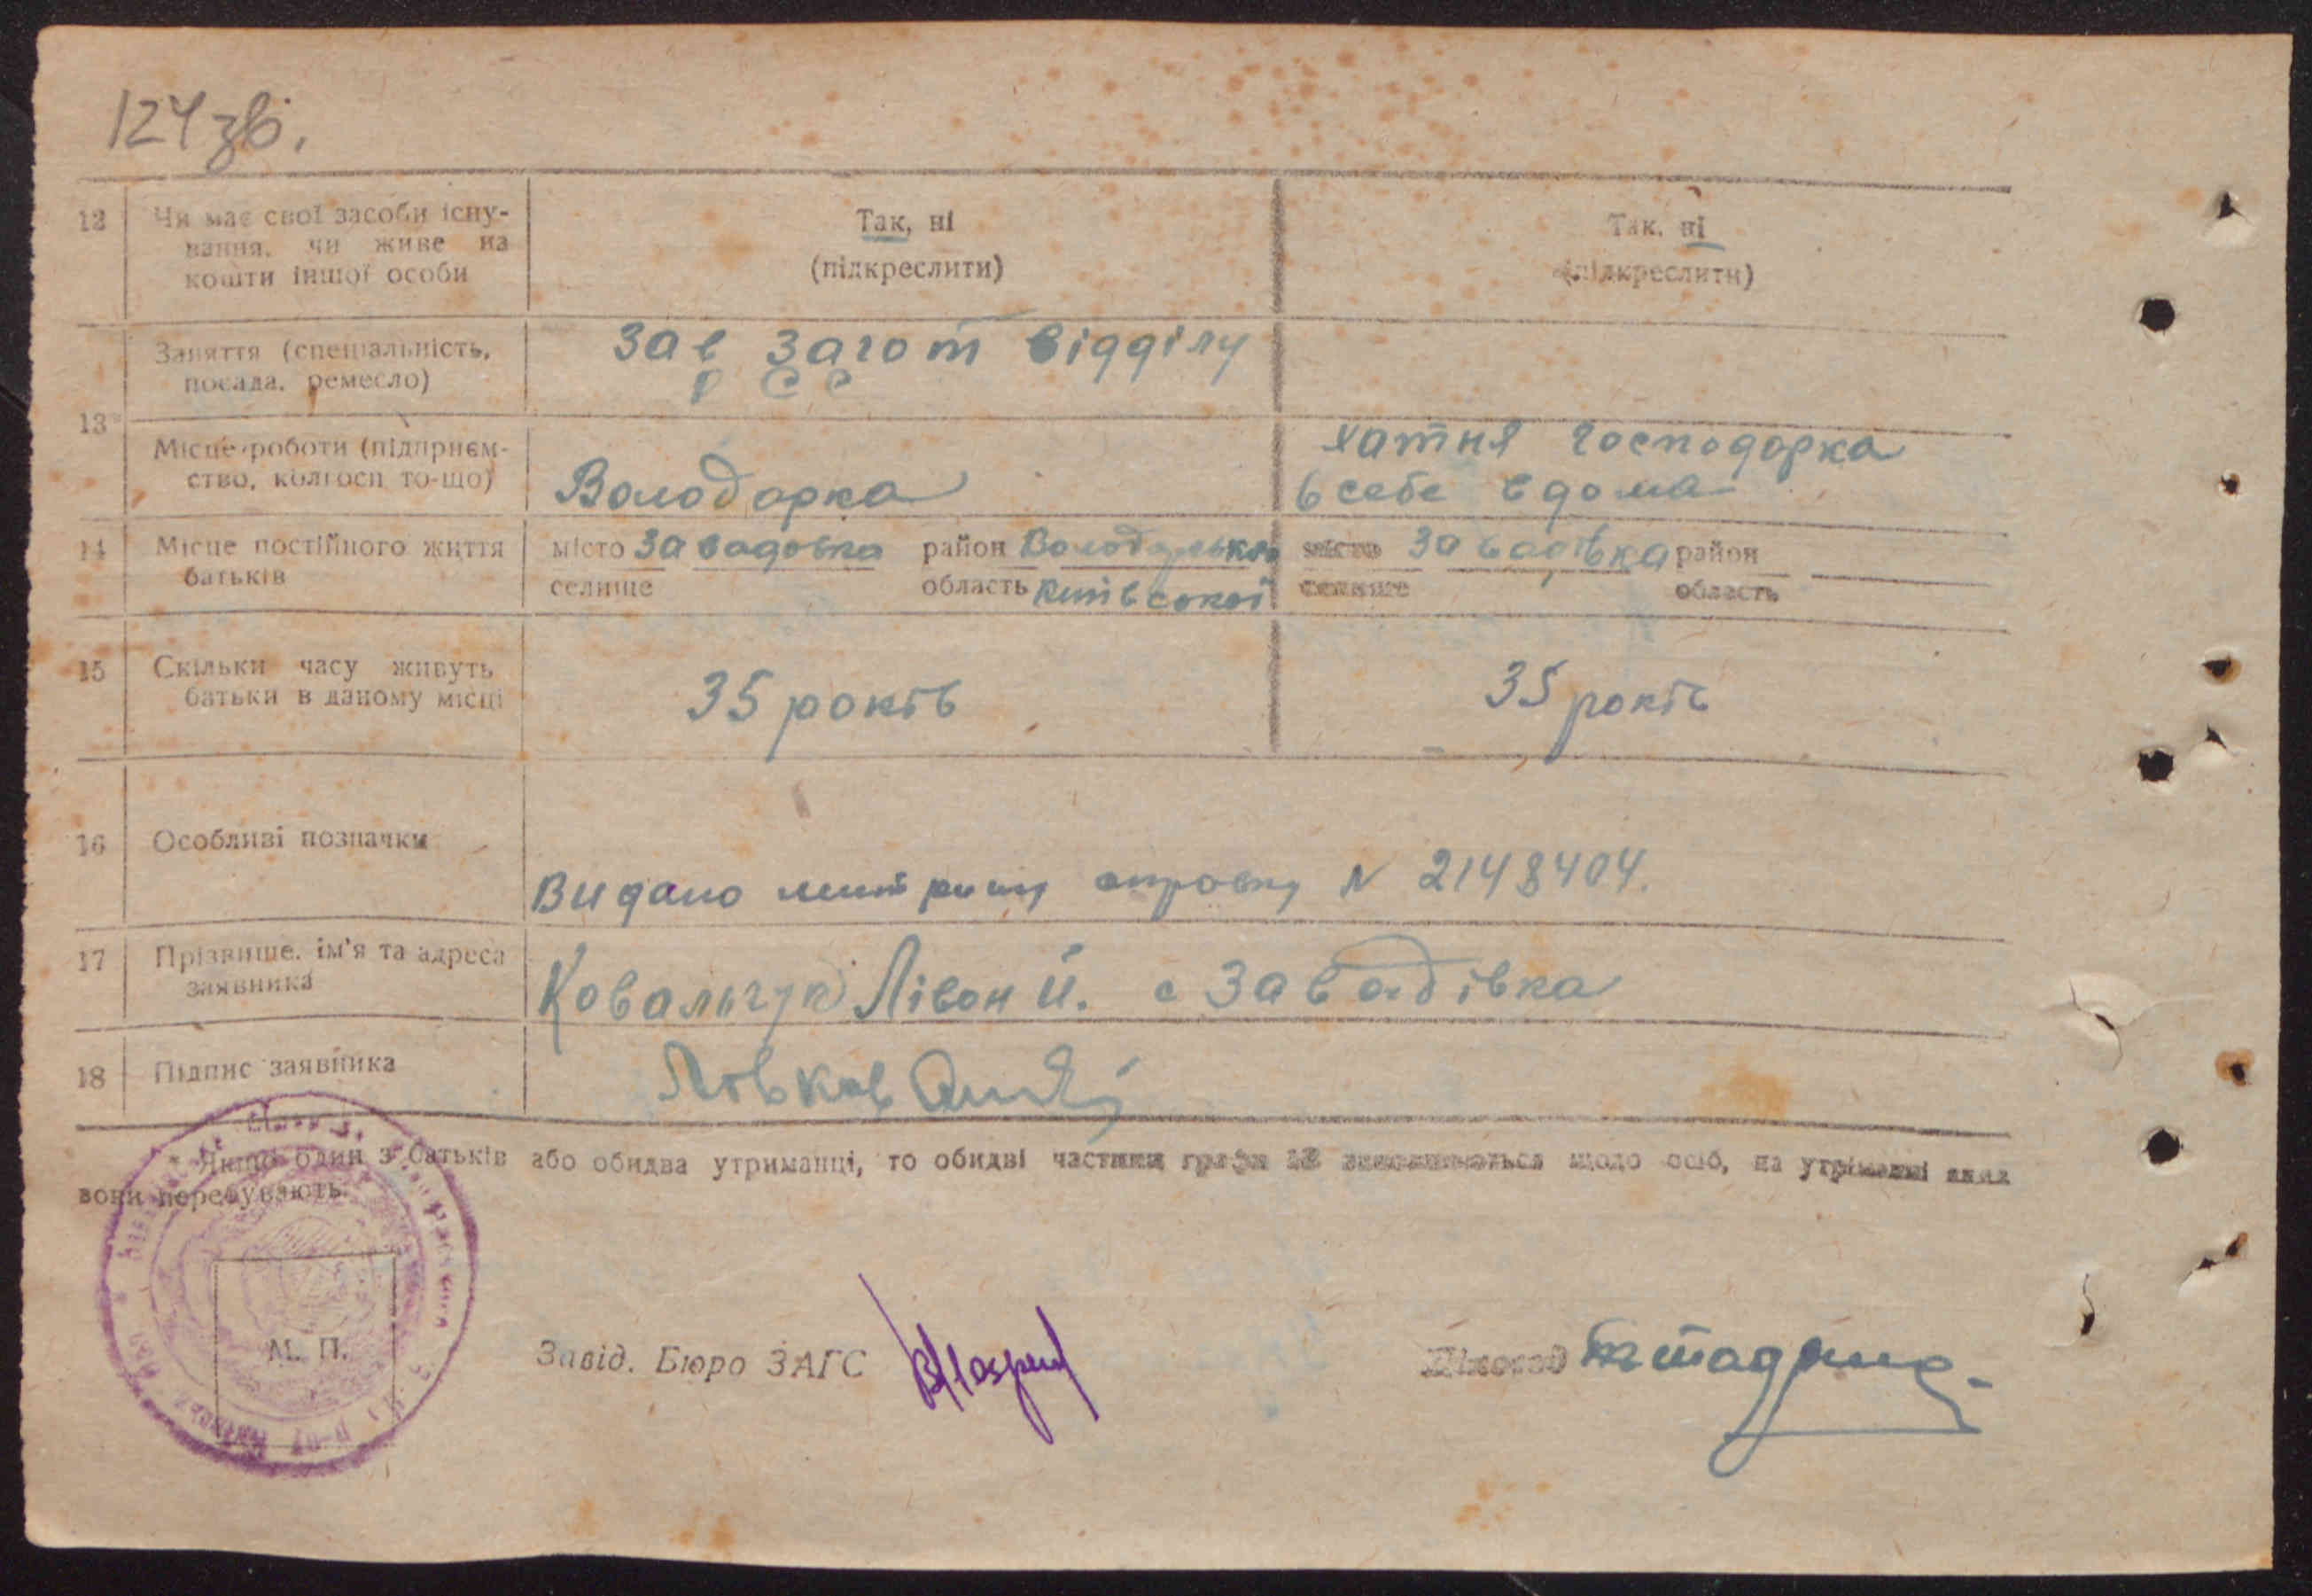 124 зв.
12 Чи має свої засоби існу-
вання, чи живе на
кошти іншої особи
Так, ні
(підкреслити)
Так, ні
(підкреслити)
13* Заняття (спеціальність,
посада, ремесло)
Зав Загот відділу
РСС
Місце роботи (підприєм-
ство, колгосп то-що)
Володарка
хатня господарка
в себе вдома
14 Місце постійного життя
батьків
місто Завадовка район
селище область Київської
місто Завадівка район
селище область
15 Скільки часу живуть
батьки в даному місці
35 років
35 років
16 Особливі позначки
Видано N 2148404.
17 Прізвище, ім'я та адреса
заявника
Ковальчук Лівон Й. с Завадівка
18 Підпис заявника
* Якщо один з батьків або обидва утриманці, то обидві частини графи 13 заповнюються щодо осіб, на утриманні яких
вони перебувають.
М. П.
Завід. Бюро ЗАГС
Діловод